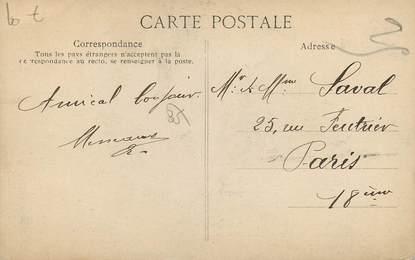 CARTE POSTALE
Correspondance
Tous les pays étrangers n'acceptent pas la
correspondance au recto, se renseigner à la poste.
Adresse
Amical bonjour.
Mr & Mme Laval
25, rue Feutrier
Paris
18ème